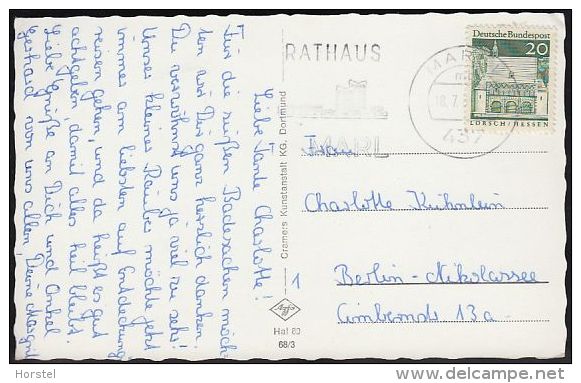 Liebe Tante Charlotte!
Für die süßen Badesachen möch-
ten wir Dir ganz herzlich danken.
Du verwöhnst uns ja viel zu sehr!
Unser kleiner Räuber möchte jetzt
immer am liebsten auf Entdeckungs
reisen gehen, und da heißt es gut
achtgeben, damit alles heil bleibt.
Liebe Grüße an Dich und Onkel
Gerhard von uns allen, Deine Margrit
Cramers Kunstanstalt KG. Dortmund
Agfa
Hal 80
68/3
RATHAUS
MARL
MARL
18.7.
437
Deutsche Bundespost
20
LORSCH/HESSEN
Frau
Charlotte Kühnlein
1
Berlin-Nikolassee
13a
Horstel
delcampe.net